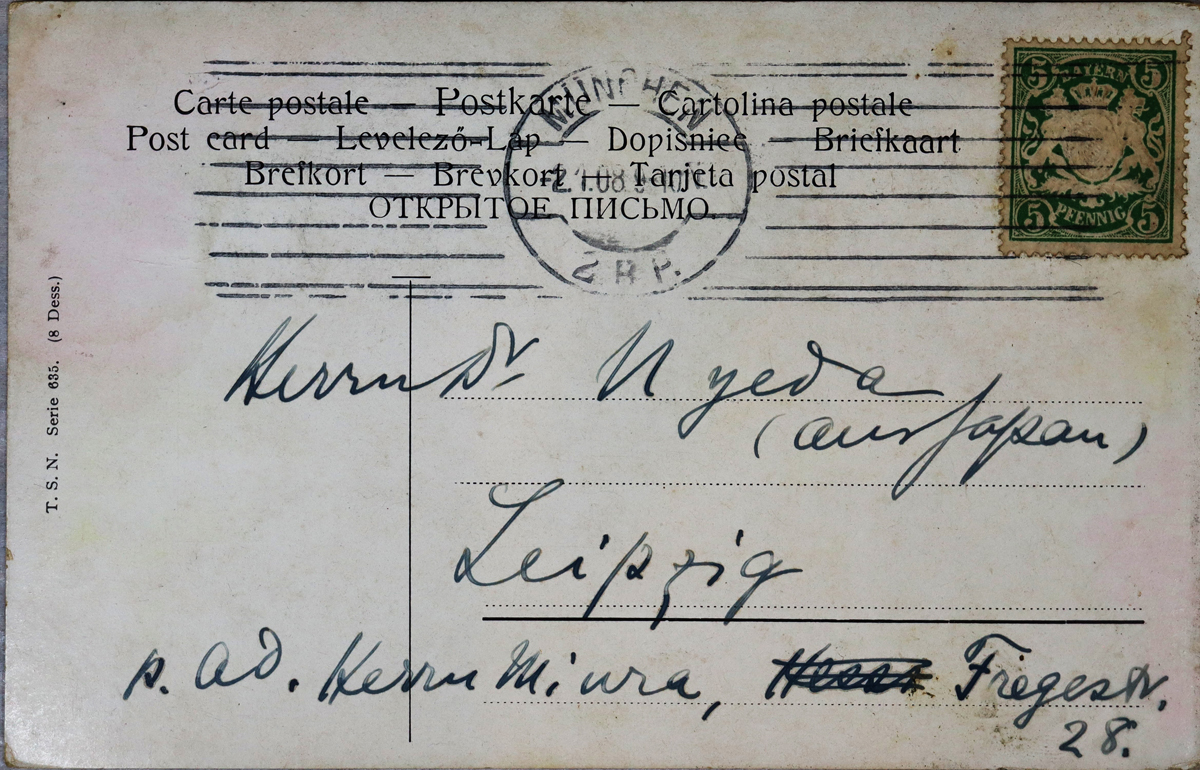 Carte postale — Postkarte — Cartolina postale
Post card — Levelező-Lap — Dopisniec — Briefkaart
Brefkort — Brevkort — Tarjeta postal
ОТКРЫТОЕ ПИСЬМО
MÜNCHEN
2.1.08
2 B P.
5 BAYERN 5
5 PFENNIG 5
T. S. N. Serie 635. (8 Dess.)
Herrn Dr Uyeda
(aus Japan)
Leipzig
p. Ad. Herrn Miura, Fregestr.
28.